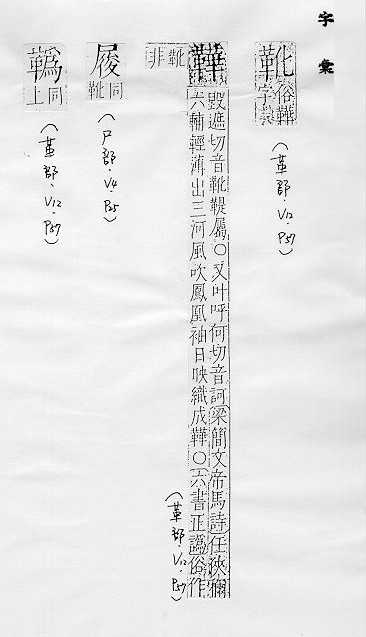 字彙
靴俗鞾字
(革部·V12·P57)
鞾
毀遮切音靴鞮屬○又叶呼何切音訶梁簡文帝馬詩任狹彌
六輔輕薄出三河風吹鳳凰袖日映織成鞾○六書正譌俗作
靴非
(革部·V12·P57)
同靴
(尸部·V4·P25)
同上
(革部·V12·P57)